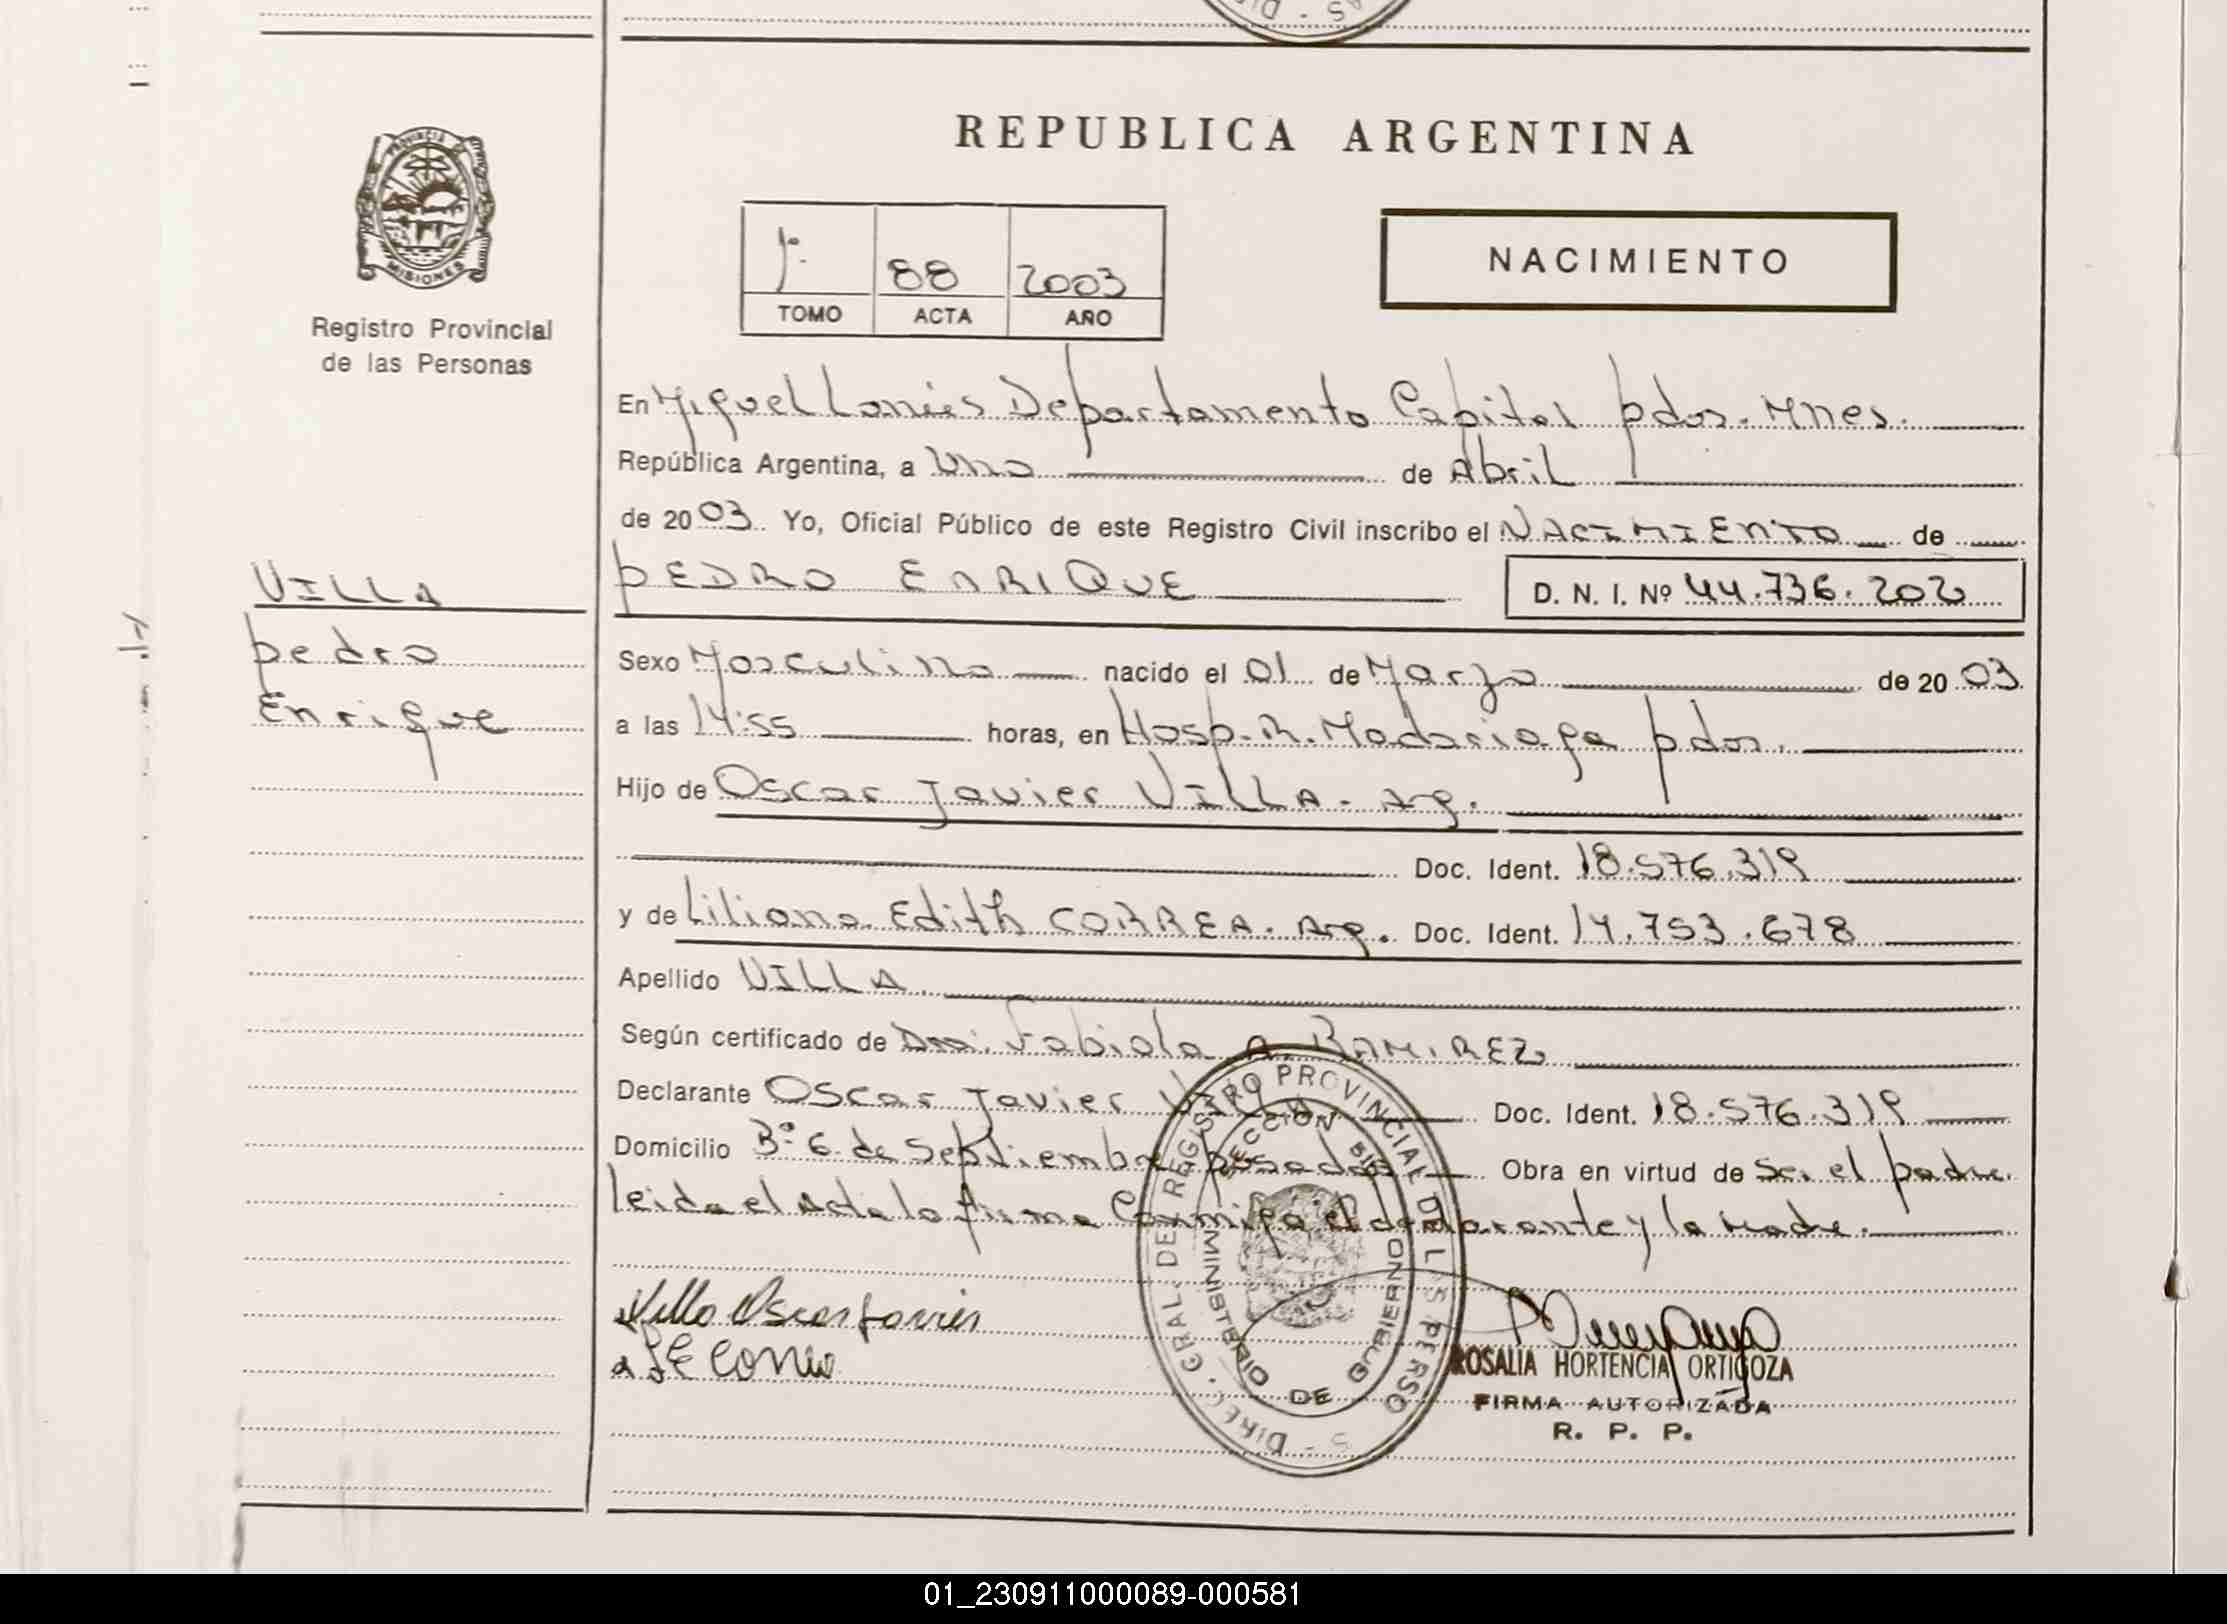 REPUBLICA ARGENTINA
PROVINCIA DE
MISIONES
Registro Provincial
de las Personas
1º
88
2003
TOMO
ACTA
AÑO
NACIMIENTO
En Miguel Lanús Departamento Capital pdas. Mnes.
República Argentina, a Uno de Abril
de 2003. Yo, Oficial Público de este Registro Civil inscribo el NACIMIENTO de
PEDRO ENRIQUE
D. N. I. Nº 44.736.202
VILLA
Pedro
Enrique
Sexo Masculino nacido el 01 de Marzo de 2003
a las 14:55 horas, en Hosp. R. Madariaga pdas.
Hijo de Oscar Javier VILLA. Arg.
Doc. Ident. 18.576.319
y de Liliana Edith CORREA. Arg. Doc. Ident. 14.753.678
Apellido VILLA
Según certificado de Dra. Fabiola A. RAMIREZ
Declarante Oscar Javier Villa Doc. Ident. 18.576.319
Domicilio Bº 6 de Septiembre posadas Obra en virtud de Ser el padre.
leida el Acta la firma Conmigo el declarante y la Madre.
Villa Oscar Javier
ROSALIA HORTENCIA ORTIGOZA
FIRMA AUTORIZADA
R. P. P.
MINISTERIO DE GOBIERNO
01_230911000089-000581